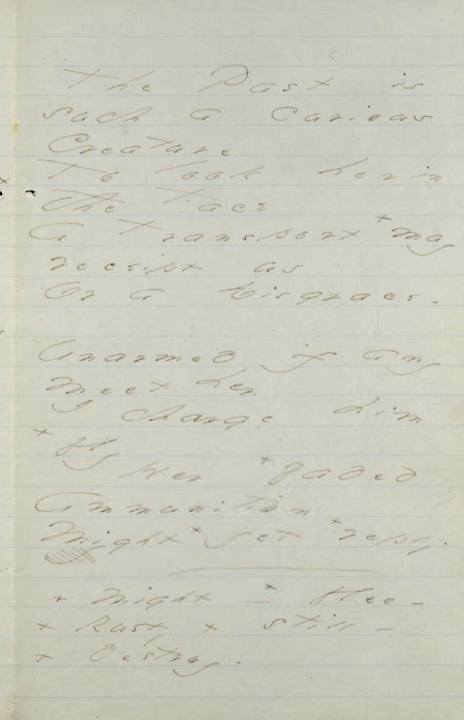 The Past is
such a Curious
Creature
To look her in
the Face
A Transport + may
receipt us
Or a Disgrace -
Unarmed if any
meet her
I charge him
+ Fly
Her + faded
Ammunition
Might + yet + reply.
+ Might - + flee -
+ Rusty + still -
+ Destroy.